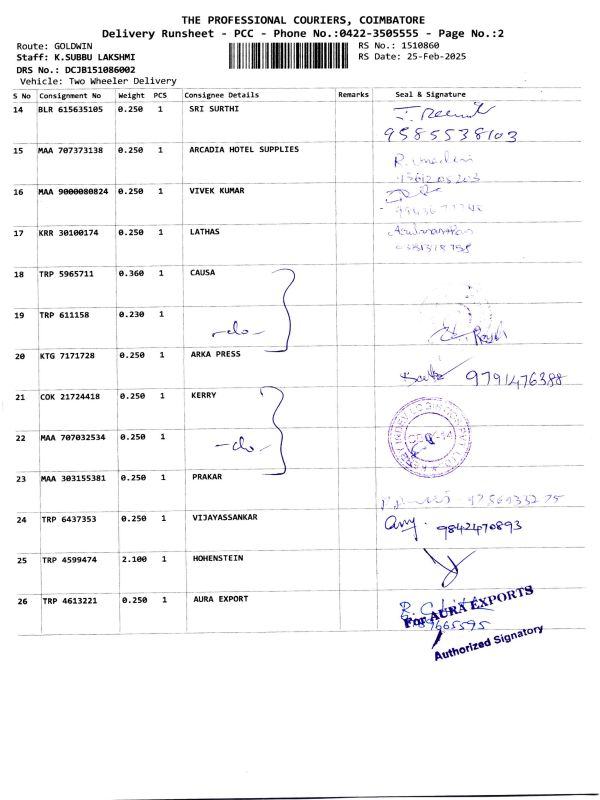 THE PROFESSIONAL COURIERS, COIMBATORE
Delivery Runsheet - PCC - Phone No.:0422-3505555 - Page No.:2
Route: GOLDWIN
Staff: K.SUBBU LAKSHMI
DRS No.: DCJB151086002
Vehicle: Two Wheeler Delivery
RS No.: 1510860
RS Date: 25-Feb-2025
S No Consignment No Weight PCS Consignee Details Remarks Seal & Signature
14 BLR 615635105 0.250 1 SRI SURTHI
9585538103
15 MAA 707373138 0.250 1 ARCADIA HOTEL SUPPLIES
16 MAA 9000080824 0.250 1 VIVEK KUMAR
17 KRR 30100174 0.250 1 LATHAS
18 TRP 5965711 0.360 1 CAUSA
19 TRP 611158 0.230 1 -do-
20 KTG 7171728 0.250 1 ARKA PRESS
9791476388
21 COK 21724418 0.250 1 KERRY
22 MAA 707032534 0.250 1 -do-
23 MAA 303155381 0.250 1 PRAKAR
24 TRP 6437353 0.250 1 VIJAYASSANKAR
9842470893
25 TRP 4599474 2.100 1 HOHENSTEIN
26 TRP 4613221 0.250 1 AURA EXPORT
For AURA EXPORTS
Authorized Signatory